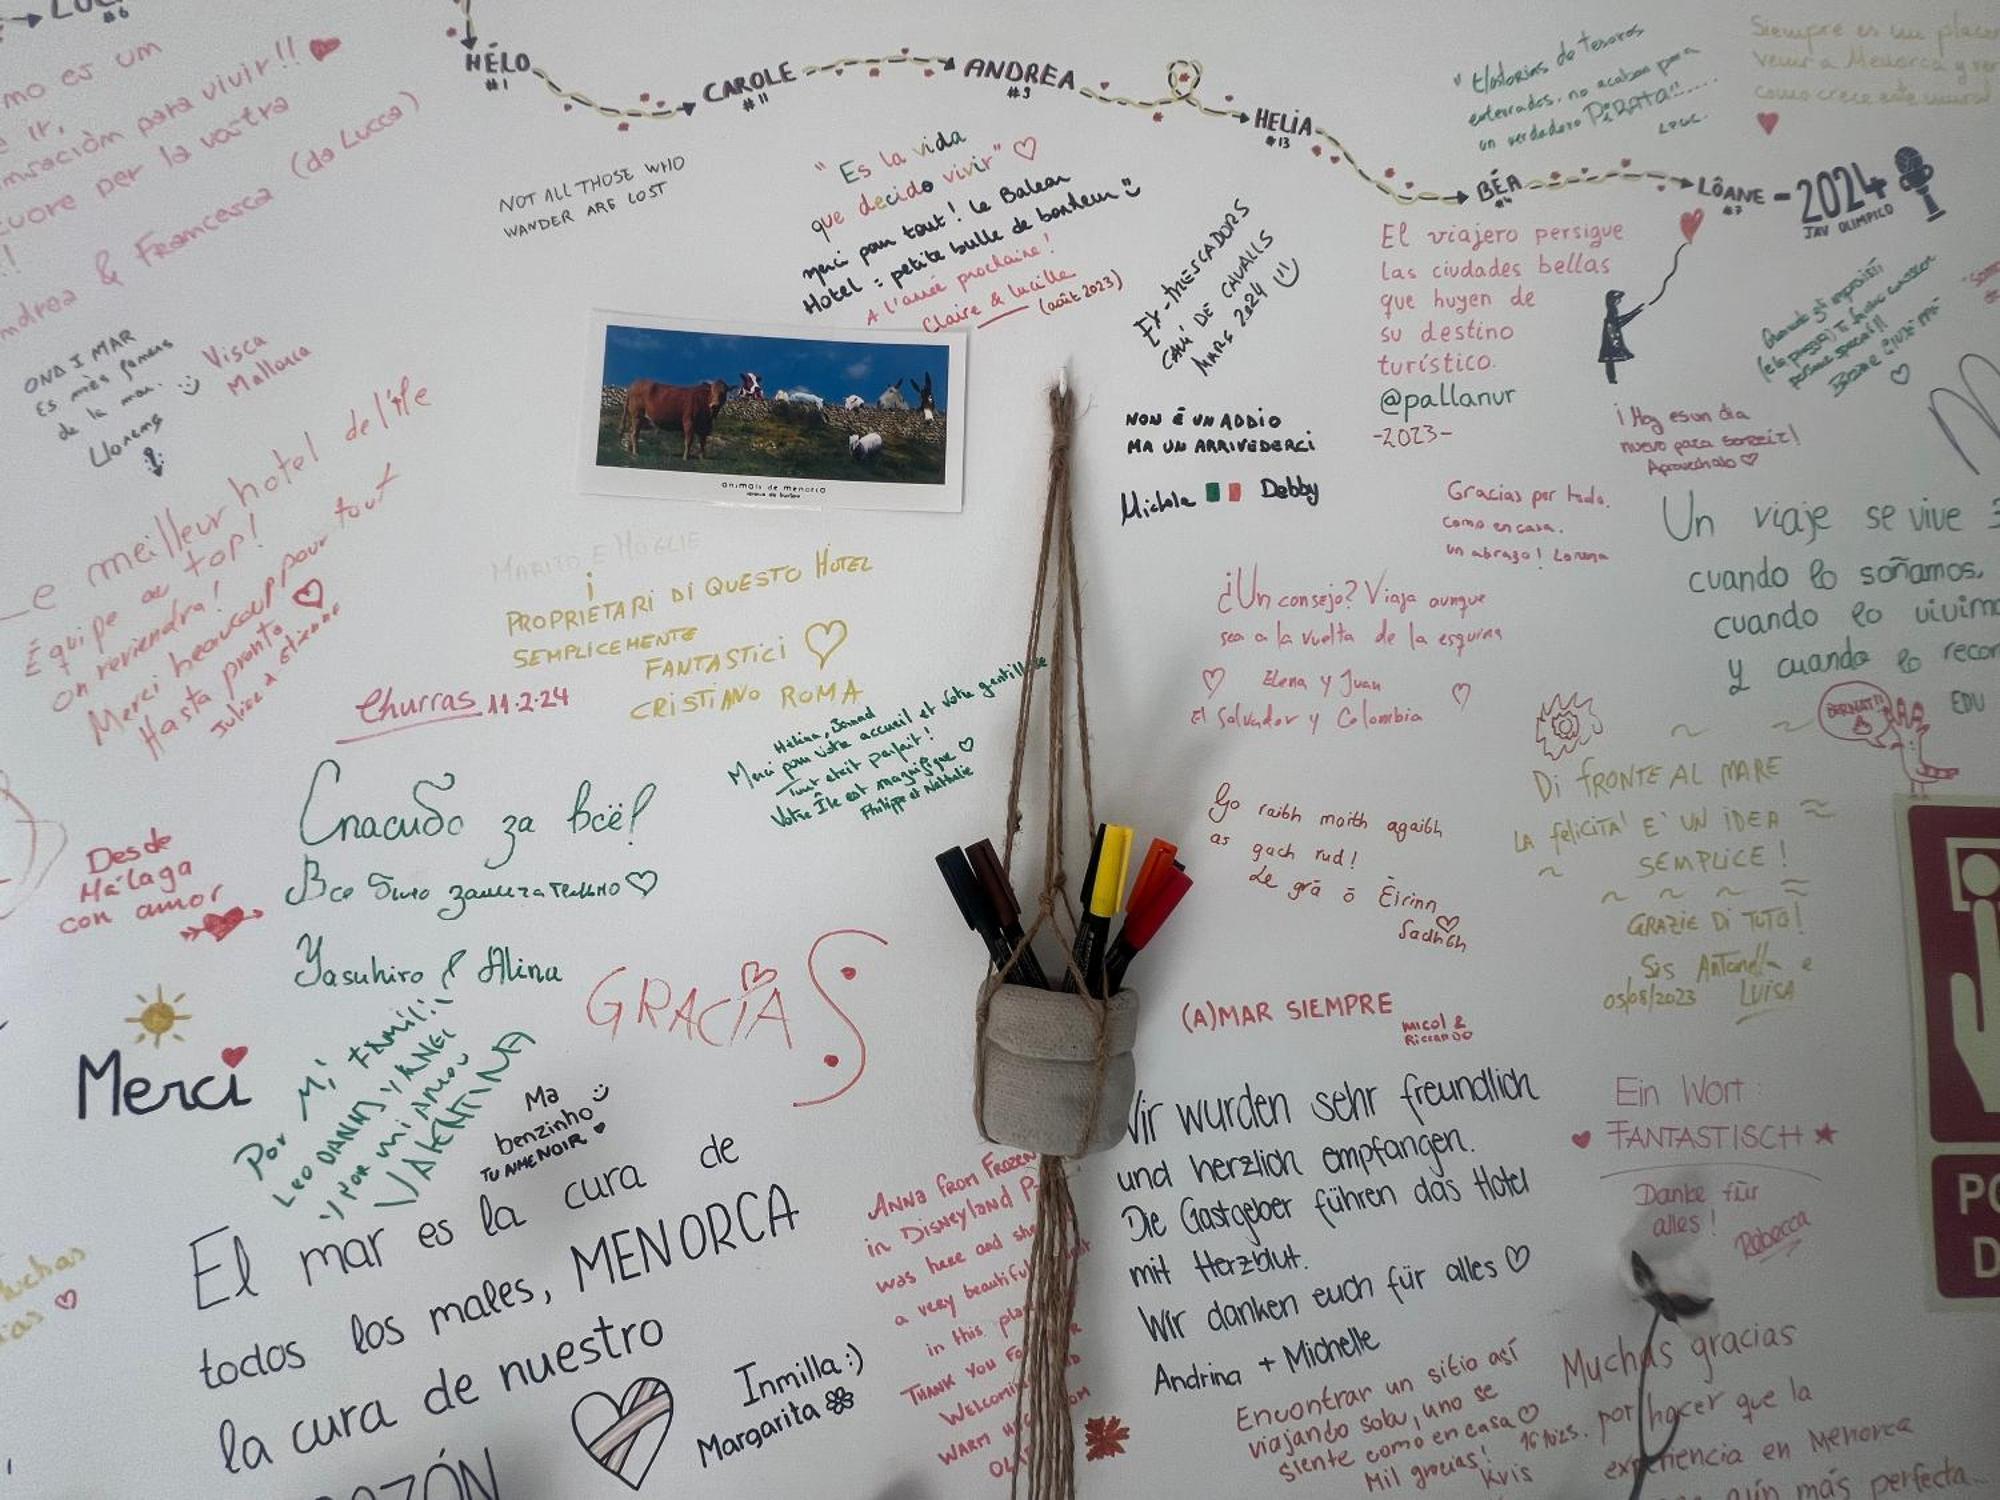 HÉLO
#1
CAROLE
#11
ANDREA
#9
HELIA
#13
BÉA
LÔANE - 2024
JAV OLIMPICO
#6
mo es um
para vivir!!
per la vostra
& Francesca (da Lucca)
NOT ALL THOSE WHO
WANDER ARE LOST
"Es la vida
que decido vivir"
merci pour tout! Le Balear
Hotel = petite bulle de bonheur
A l'année prochaine!
Claire & Lucille (août 2023)
"Historias de tesoros
enterrados, no acaban para
un verdadero PiRATA"......
Siempre es un placer
venir a Menorca y ver
como crece este mural
EX-PRESCADORS
CAMÍ DE CAVALLS
MARÇ 2024
El viajero persigue
las ciudades bellas
que huyen de
su destino
turístico.
@pallanur
-2023-
ONA I MAR
Es més famens
de la mar.
Llorenç
Visca
Mallorca
animals de menorca
NON É UN ADDIO
MA UN ARRIVEDERCI
Michele Debby
¡Hoy es un día
nuevo para sonreír!
Aprovechalo
Gracias por todo.
como en casa.
un abrazo! Lorena
Un viaje se vive 3
cuando lo soñamos,
cuando lo vivimo
y cuando lo recor
EDU
BERNAT!!
Le meilleur hotel de l'île
Équipe au top!
on reviendra!
Merci beaucoup pour tout
Hasta pronto
Julie & Etienne
MARITO E MOGLIE
i
PROPRIETARI DI QUESTO HOTEL
SEMPLICEMENTE
FANTASTICI
CRISTIANO ROMA
Churras 11.2.24
Merci pour votre accueil et votre gentillesse
Tout était parfait!
Votre Île est magnifique
Philippe et Nathalie
¿Un consejo? Viaja aunque
sea a la vuelta de la esquina
Elena y Juan
El Salvador y Colombia
Спасибо за всё!
Все было замечательно
Yasuhiro & Alina
Desde
Málaga
con amor
Go raibh maith agaibh
as gach rud!
Le grá ó Éirinn
Sadhbh
Di FRONTE AL MARE
LA feliCITA' E' UN IDEA
SEMPLICE!
GRAZIE DI TUTO!
Sis Antonella e
05/08/2023 LUISA
GRACIAS
(A)MAR SIEMPRE
MICOL &
RICCARDO
Merci
POr Mi FAMili
LEO DANNY Y ANEL
Y POR Mi AMOR
VALENTINA
Ma
benzinho
TU AIME NOIR
Wir wurden sehr freundlich
und herzlich empfangen.
Die Gastgeber führen das Hotel
mit Herzblut.
Wir danken euch für alles
Andrina + Michelle
Ein Wort
FANTASTISCH
Danke für
alles!
Rebecca
El mar es la cura de
todos los males, MENORCA
la cura de nuestro
Inmilla:)
Margarita
ANNA from FROZEN
in Disneyland P
was here and she
a very beautiful
in this pla
THANK YOU FO
Welcomin
WARM
Encontrar un sitio así
viajando sola, uno se
siente como en casa
Mil gracias!
Kris
Muchas gracias
por hacer que la
experiencia en Menorca
aún más perfecta...
PO
D